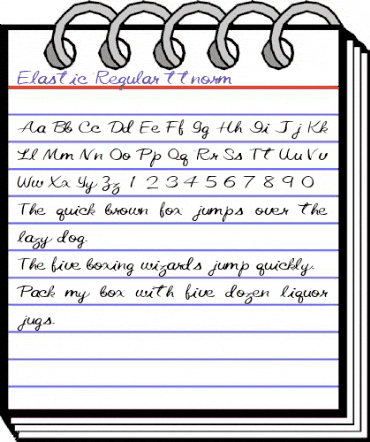 Elastic Regular ttnorm
Aa Bb Cc Dd Ee Ff Gg Hh Ii Jj Kk
Ll Mm Nn Oo Pp Qq Rr Ss Tt Uu Vv
Ww Xx Yy Zz 1 2 3 4 5 6 7 8 9 0
The quick brown fox jumps over the
lazy dog.
The five boxing wizards jump quickly.
Pack my box with five dozen liquor
jugs.